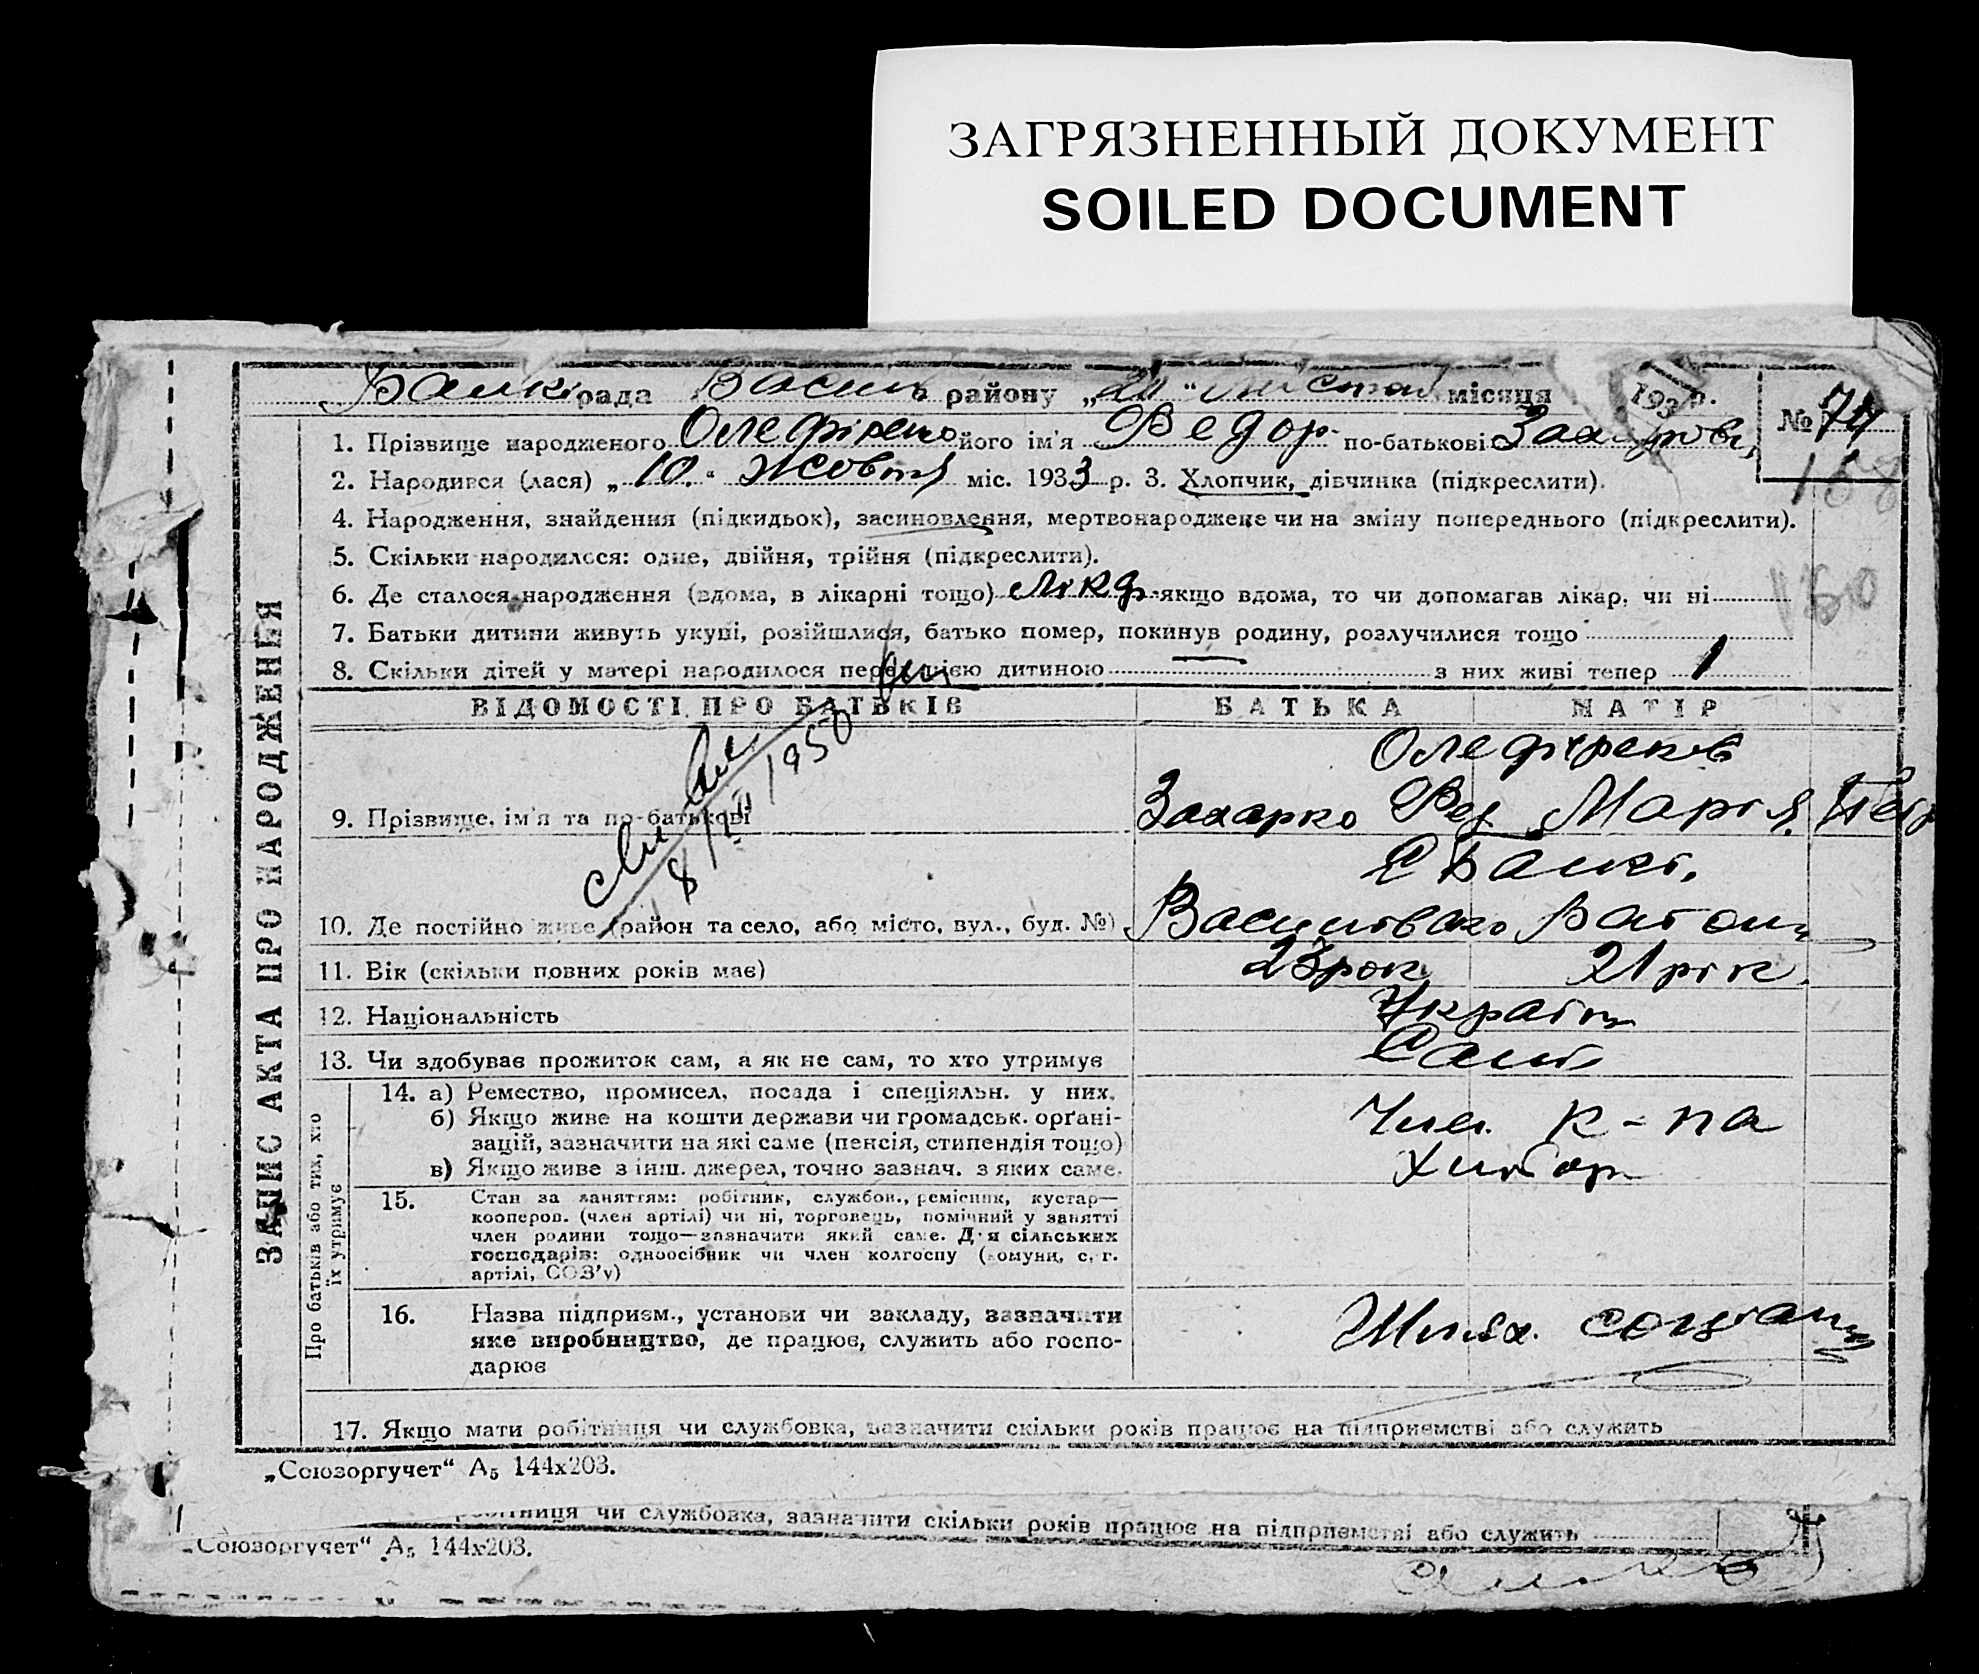 ЗАГРЯЗНЕННЫЙ ДОКУМЕНТ
SOILED DOCUMENT
рада району „21“ местност місяця 193 р. № 74
1. Прізвище народженого Олефіренко його ім'я Федор по-батькові
158
2. Народився (лася) „10.“ Жовтня міс. 1933 р. 3. Хлопчик, дівчинка (підкреслити).
4. Народження, знайдення (підкидьок), засиновлення, мертвонароджене чи на зміну попереднього (підкреслити).
5. Скільки народилося: одне, двійня, трійня (підкреслити).
6. Де сталося народження (вдома, в лікарні тощо) якщо вдома, то чи допомагав лікар, чи ні
7. Батьки дитини живуть укупі, розійшлися, батько помер, покинув родину, розлучилися тощо
8. Скільки дітей у матері народилося перед цією дитиною — з них живі тепер 1
ЗАПИС АКТА ПРО НАРОДЖЕННЯ
ВІДОМОСТІ ПРО БАТЬКІВ БАТЬКА МАТІР
8/III 1950
9. Прізвище, ім'я та по-батькові
Захарко Фед Марія Петр
10. Де постійно живе (район та село, або місто, вул., буд. №)
11. Вік (скільки повних років має) 23 рок 21 рік.
12. Національність Україн
13. Чи здобуває прожиток сам, а як не сам, то хто утримує Самі
Про батьків або тих, хто їх утримує
14. а) Ремество, промисел, посада і спеціяльн. у них.
б) Якщо живе на кошти держави чи громадськ. орґані-
зацій, зазначити на які саме (пенсія, стипендія тощо)
в) Якщо живе з інш. джерел, точно зазнач. з яких саме.
Член к-па
хлібор
15. Стан за заняттям: робітник, службов., ремісник, кустар—
кооперов. (член артілі) чи ні, торговець, помічний у занятті
член родини тощо—зазначити який саме. Для сільських
господарів: одноосібник чи член колгоспу (комуни, с. г.
артілі, СОЗ'у)
16. Назва підприєм., установи чи закладу, зазначити
яке виробництво, де працює, служить або госпо-
дарює
Шлях.
17. Якщо мати робітниця чи службовка, зазначити скільки років працює на підприємстві або служить
„Союзоргучет“ А5 144х203.
робітниця чи службовка, зазначити скільки років працює на підприємстві або служить
„Союзоргучет“ А5 144х203.